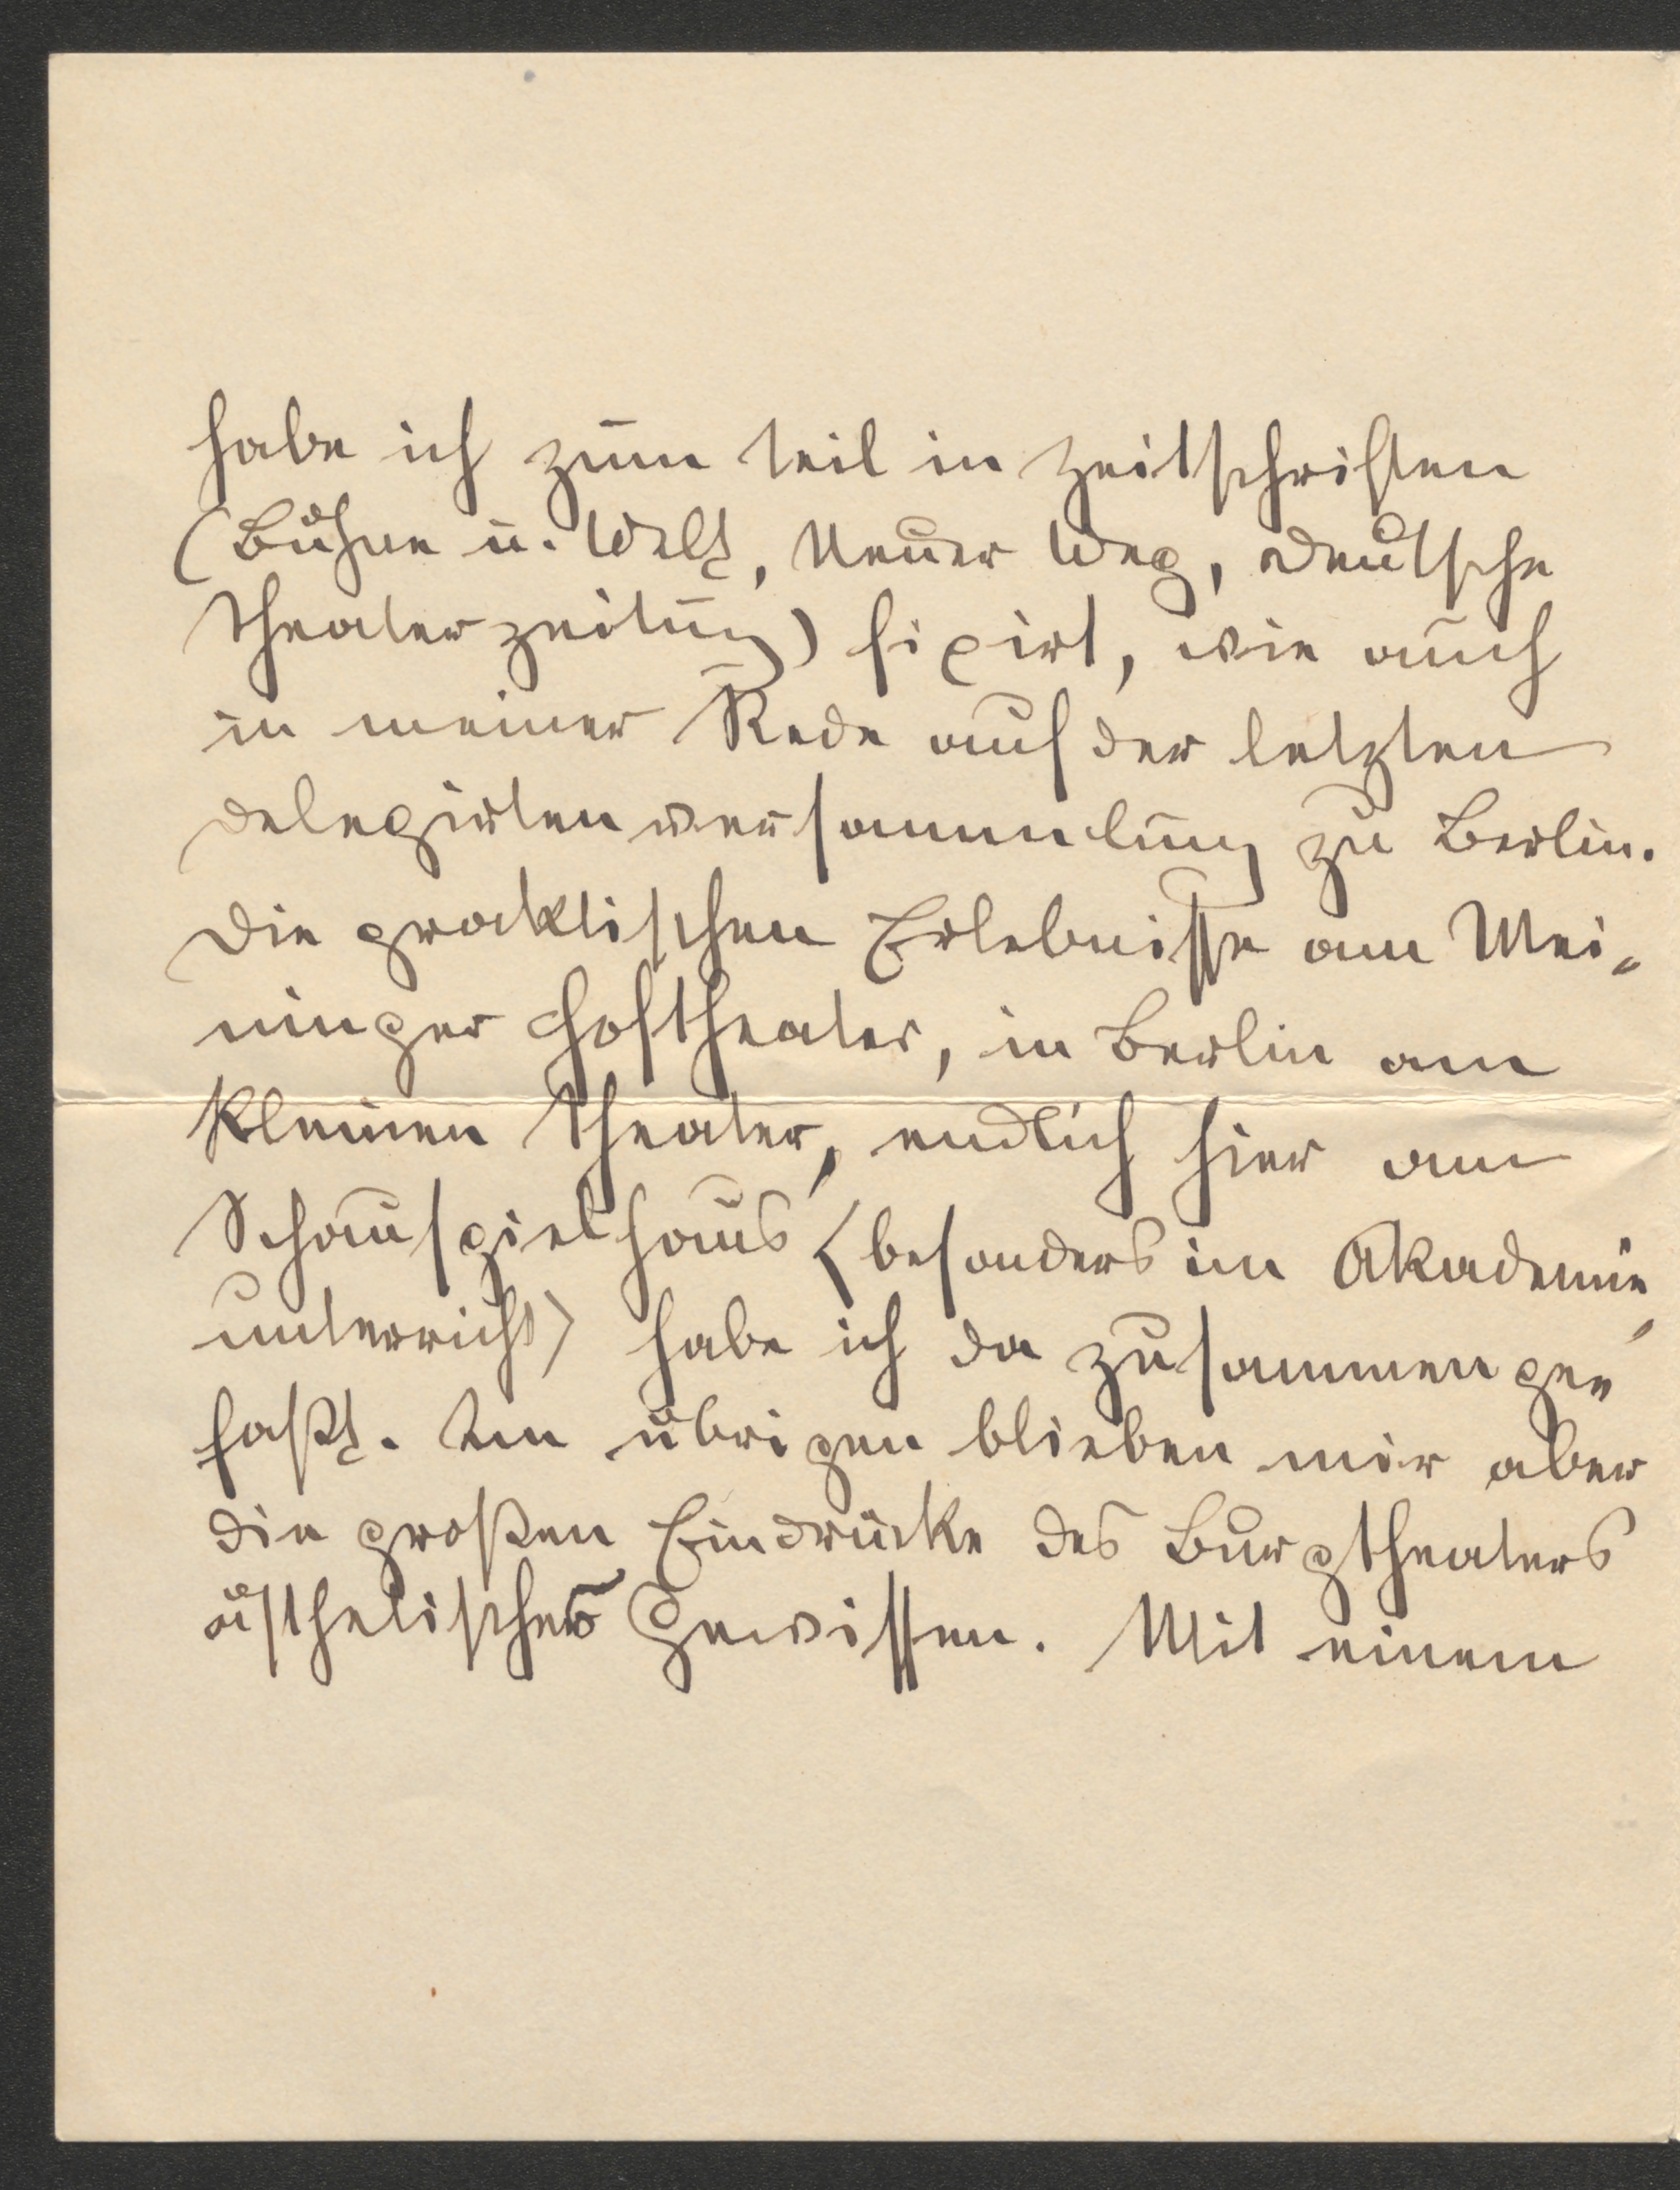 habe ich zum teil in Zeitschriften
(Bühne u. Welt, Neuer Weg, Deutsche
Theaterzeitung) fixirt, wie auch
in meiner Rede auf der letzten
Delegirtenversammlung zu Berlin.
Die praktischen Erlebnisse am Mei-
ninger Hoftheater, in Berlin am
Kleinen Theater, endlich hier am
Schauspielhaus (besonders im Akademie-
unterricht) habe ich da zusammenge-
faßt. Im übrigen blieben mir aber
die großen Eindrücke des Burgtheaters
ästhetisches Gewissen. Mit einem